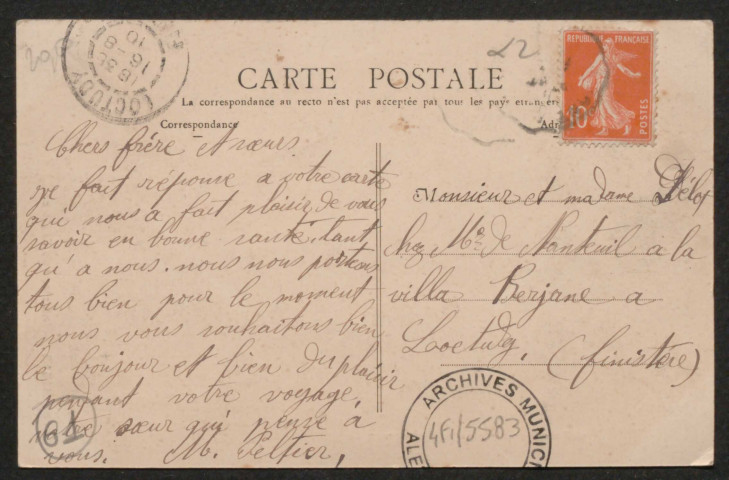 CARTE POSTALE
La correspondance au recto n'est pas acceptée par tous les pays étrangers
Correspondance
Chers frère et sœurs.
je fait réponse a votre carte
qui nous a fait plaisir de vous
savoir en bonne santé. tant
qu'a nous. nous nous portons
tous bien pour le moment
nous vous souhaitons bien
le bonjour et bien du plaisir
pendant votre voyage.
votre sœur qui pense à
vous. M. Peltier,
Monsieur et madame
chez Me de Nanteuil à la
villa Kerjane a
Loctudy, (finistère)
REPUBLIQUE FRANÇAISE
10
POSTES
LOCTUDY
ARCHIVES MUNIC
ALE
4Fi/5583